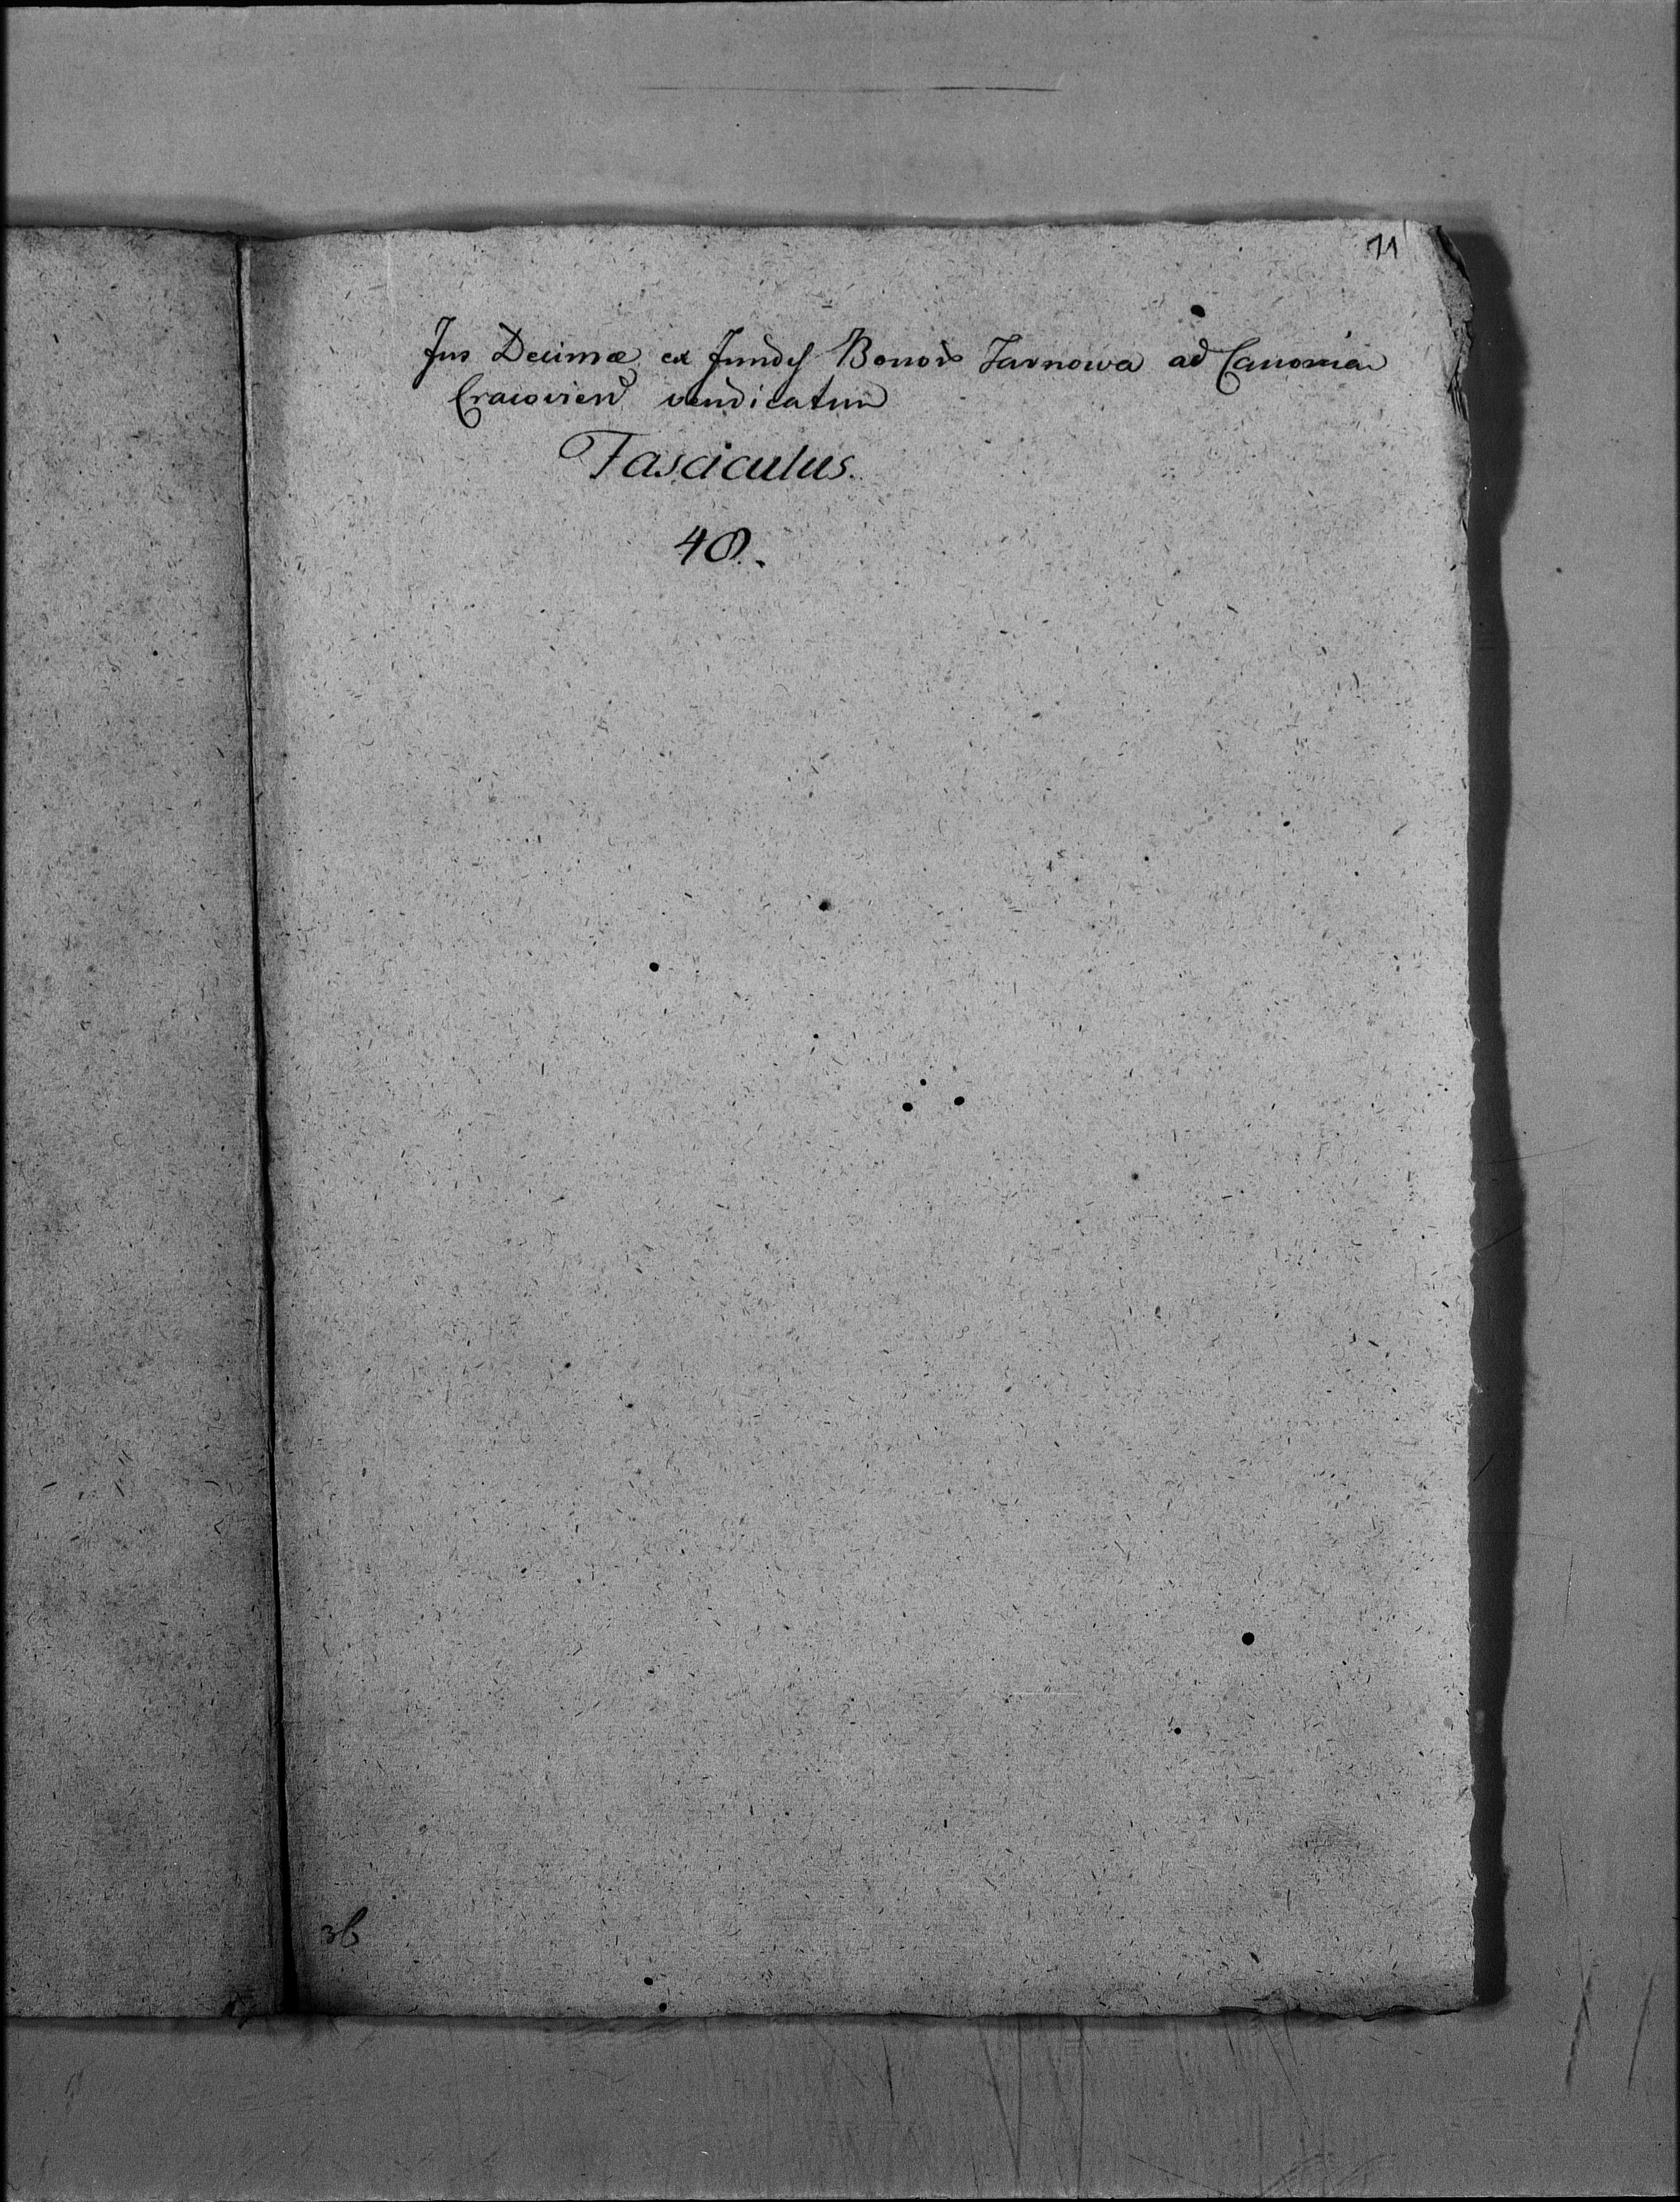 11
Jus Decimæ ex fundis Bonor Tarnowa ad Canonia
Cracovien vendicatum
Fasciculus.
48.
36